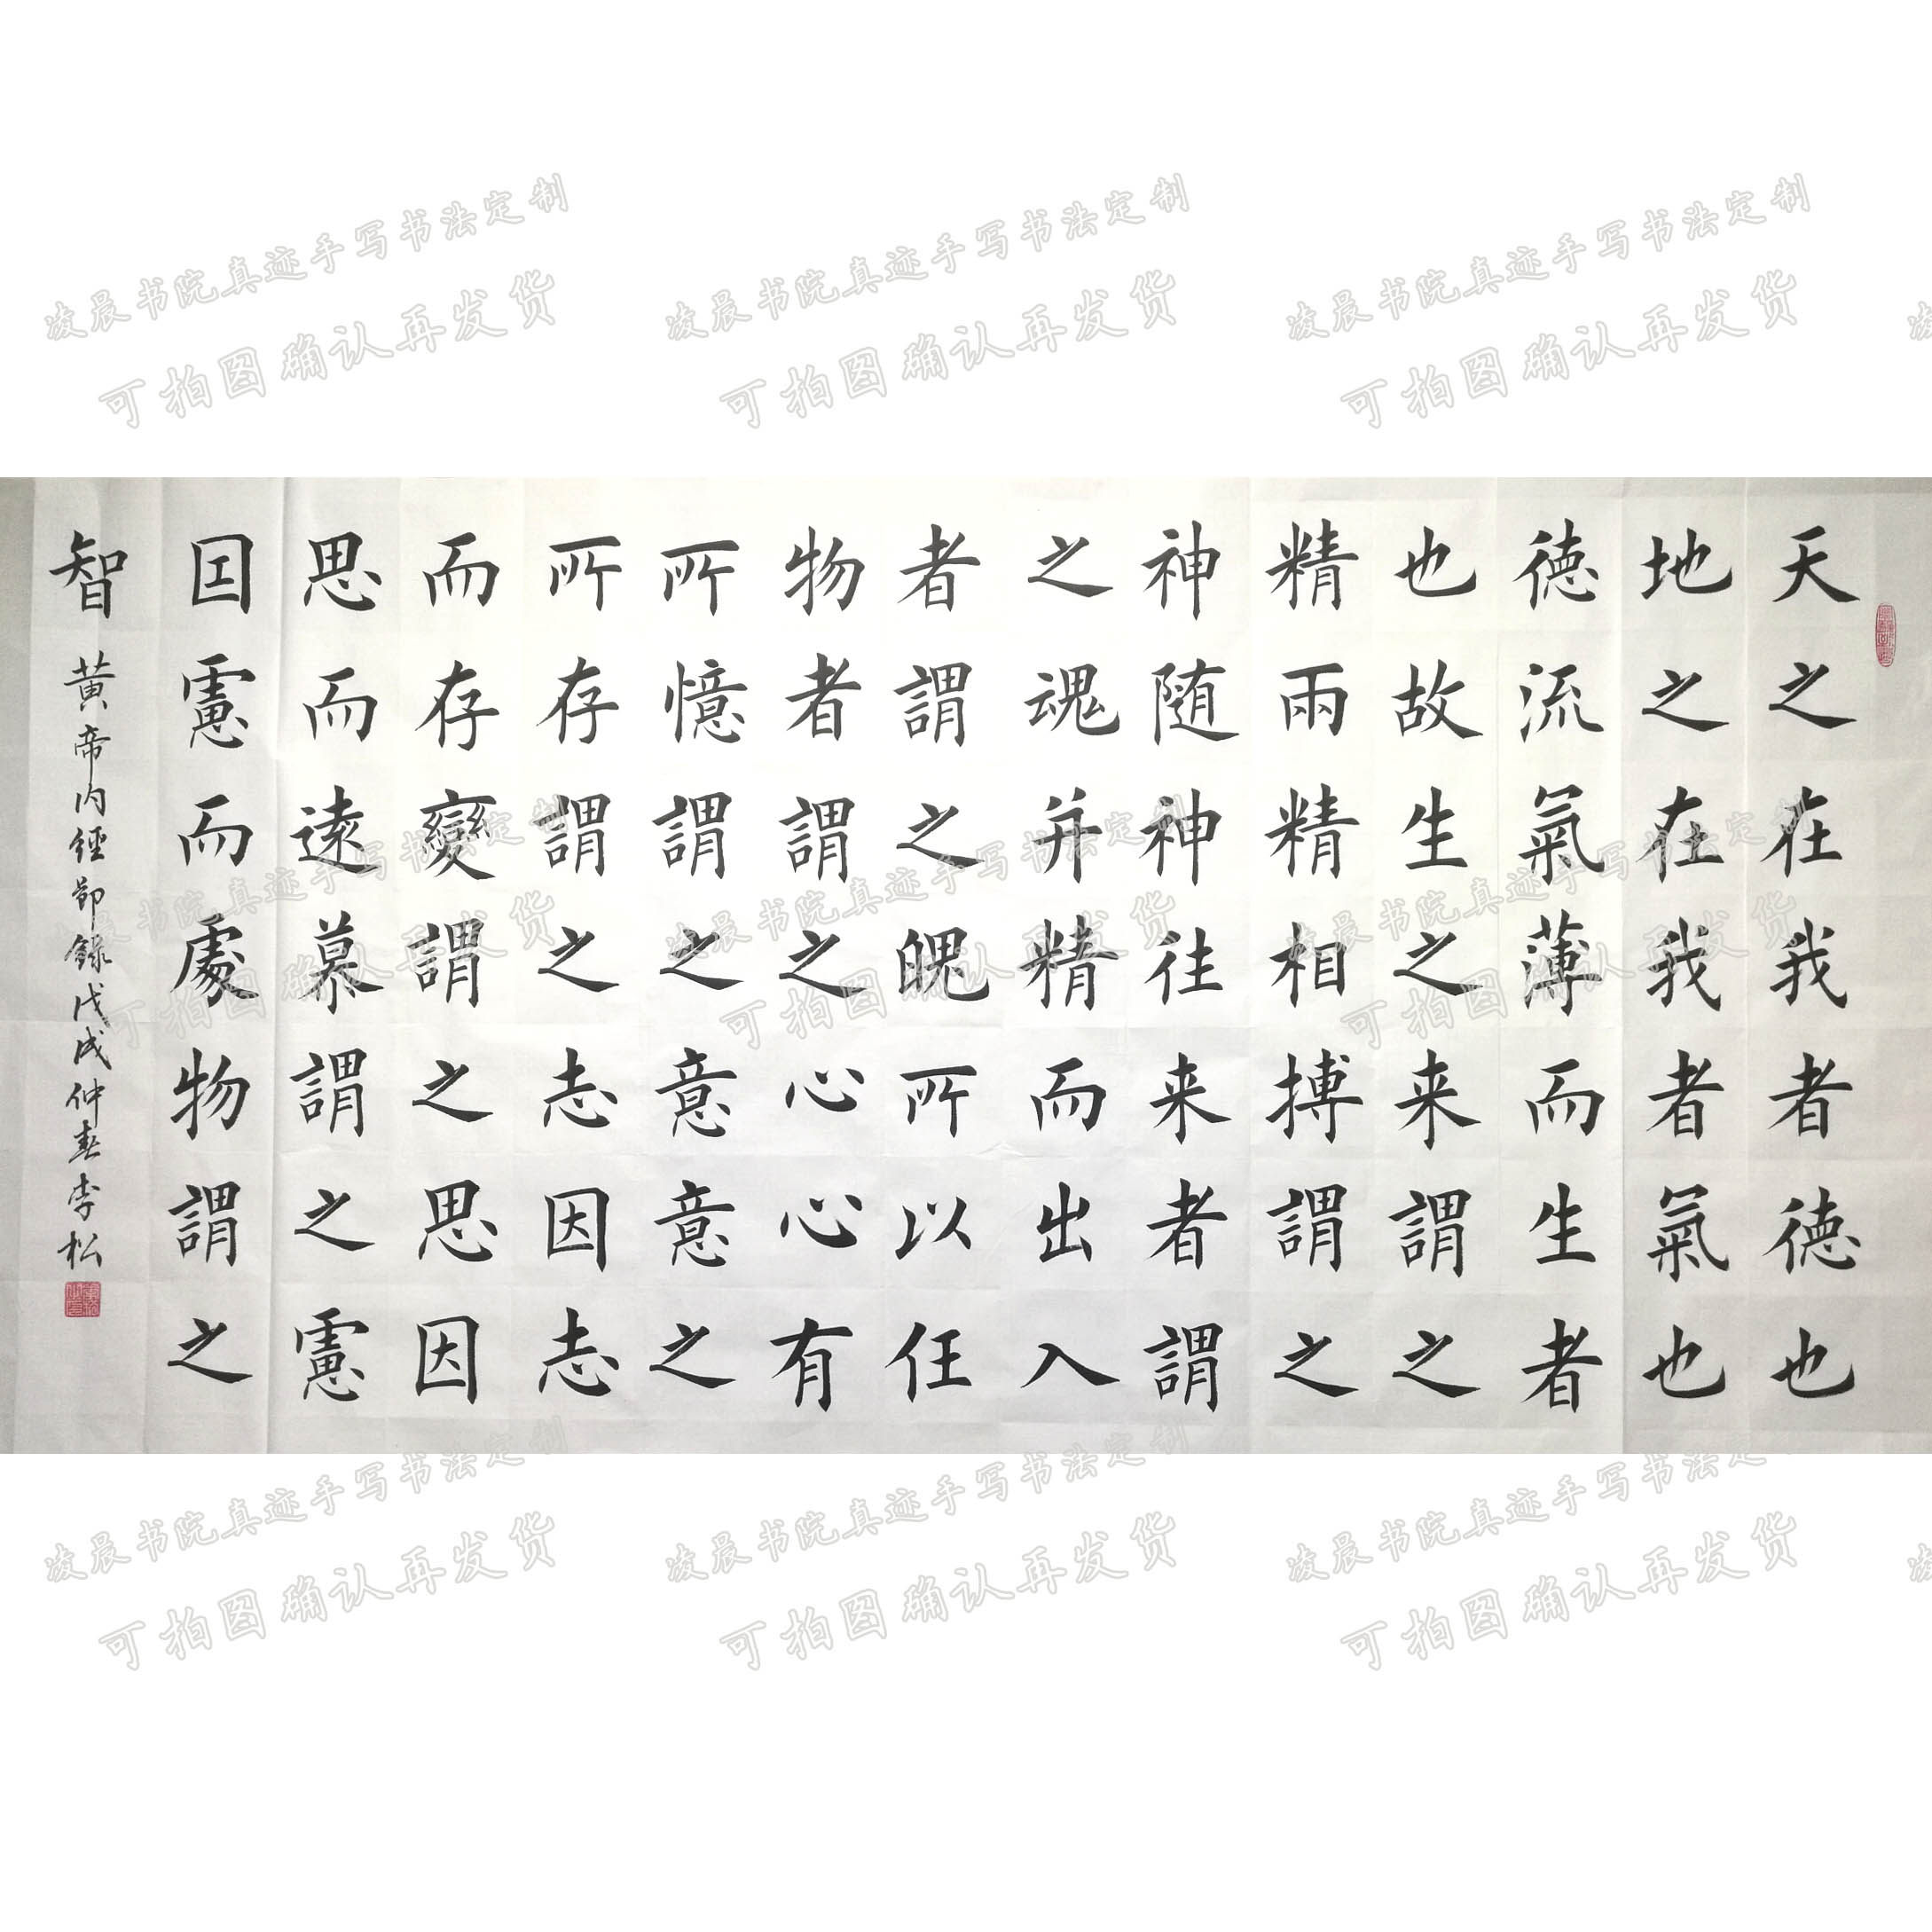 凌晨书院真迹手写书法定制
可拍图确认再发货
凌晨书院真迹手写书法定制
可拍图确认再发货
凌晨书院真迹手写书法定制
可拍图确认再发货
天之在我者德也
地之在我者氣也
德流氣薄而生者
也故生之来謂之
精兩精相搏謂之
神随神往来者謂
之魂并精而出入
者謂之魄所以任
物者謂之心心有
所憶謂之意意之
所存謂之志因志
而存變謂之思因
思而遠慕謂之慮
因慮而處物謂之
智
黄帝内經節録戊戌仲春李松
凌晨书院真迹手写书法定制
可拍图确认再发货
凌晨书院真迹手写书法定制
可拍图确认再发货
凌晨书院真迹手写书法定制
可拍图确认再发货